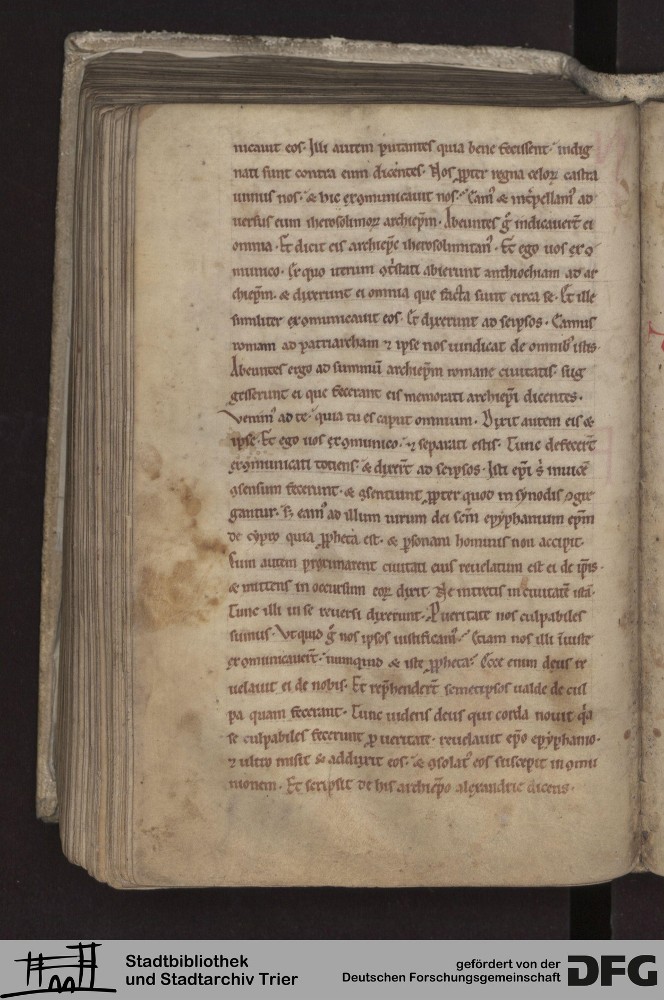 nicauit eos. Illi autem putantes quia bene fecissent. indig
nati sunt contra eum dicentes. Nos ꝓpter regna celoꝝ castra
uimus nos. & hic exꝯmunicauit nos. Eamꝰ & int̄pellamꝰ ad
uersus eum iherosolimoꝝ archiep̄m. Abeuntes g̊ indicauer̄t ei
omnia. Et dicit eis archiep̄c iherosolimitanꝰ. Et ego uos exꝯ
munico. Ex quo iterum ꝯt̓stati abierunt antiochiam ad ar
chiep̄m. & dixerunt ei omnia que facta sunt circa se. Et ille
similiter exꝯmunicauit eos. Et dixerunt ad seipsos. Eamus
romam ad patriarcham ⁊ ipse nos uindicat de omnibꝰ istis.
Abeuntes ergo ad summū archiep̄m romane ciuitatis. sug
gesserunt ei que fecerant eis memorati archiep̄i dicentes.
Venimꝰ ad te. quia tu es caput omnium. Dixit autem eis &
ipse. Et ego uos exꝯmunico. ⁊ separati estis. Tunc defecer̄t
exꝯmunicati totiens. & dixer̄t ad seipsos. Isti ep̄i s̓ inuicē
ꝯsensum fecerunt. & ꝯsentiunt ꝓpter quod in synodis ꝯgre
gantur. S; eamꝰ ad illum uirum dei sc̄m epyphanium ep̄m
de cypro quia ꝓpheta est. & ꝑsonam hominis non accipit.
Cum autem ꝓpinquarent ciuitati eius reuelatum est ei de ip̄is.
& mittens in occursum eoꝝ dixit. Ne intretis in ciuitatē istā.
Tunc illi in se reuersi dixerunt. P ueritate nos culpabiles
sumus. Vt quid g̊ nos ipsos iustificamꝰ. Etiam nos illi īiuste
exꝯmunicauer̄t. numquid & iste ꝓpheta? Ecce enim deus re
uelauit ei de nobis. Et rep̄henderēt semetipsos ualde de cul
pa quam fecerant. Tunc uidens deus qui corda nouit q̓a
se culpabiles fecerunt ꝓ ueritate. reuelauit ep̄o epyphanio.
⁊ ultro misit & adduxit eos. & ꝯsolatꝰ eos suscepit in ꝯmu
nionem. Et scripsit de his archiep̄o alexandrie dicens.
Stadtbibliothek
und Stadtarchiv Trier
gefördert von der
Deutschen Forschungsgemeinschaft
DFG